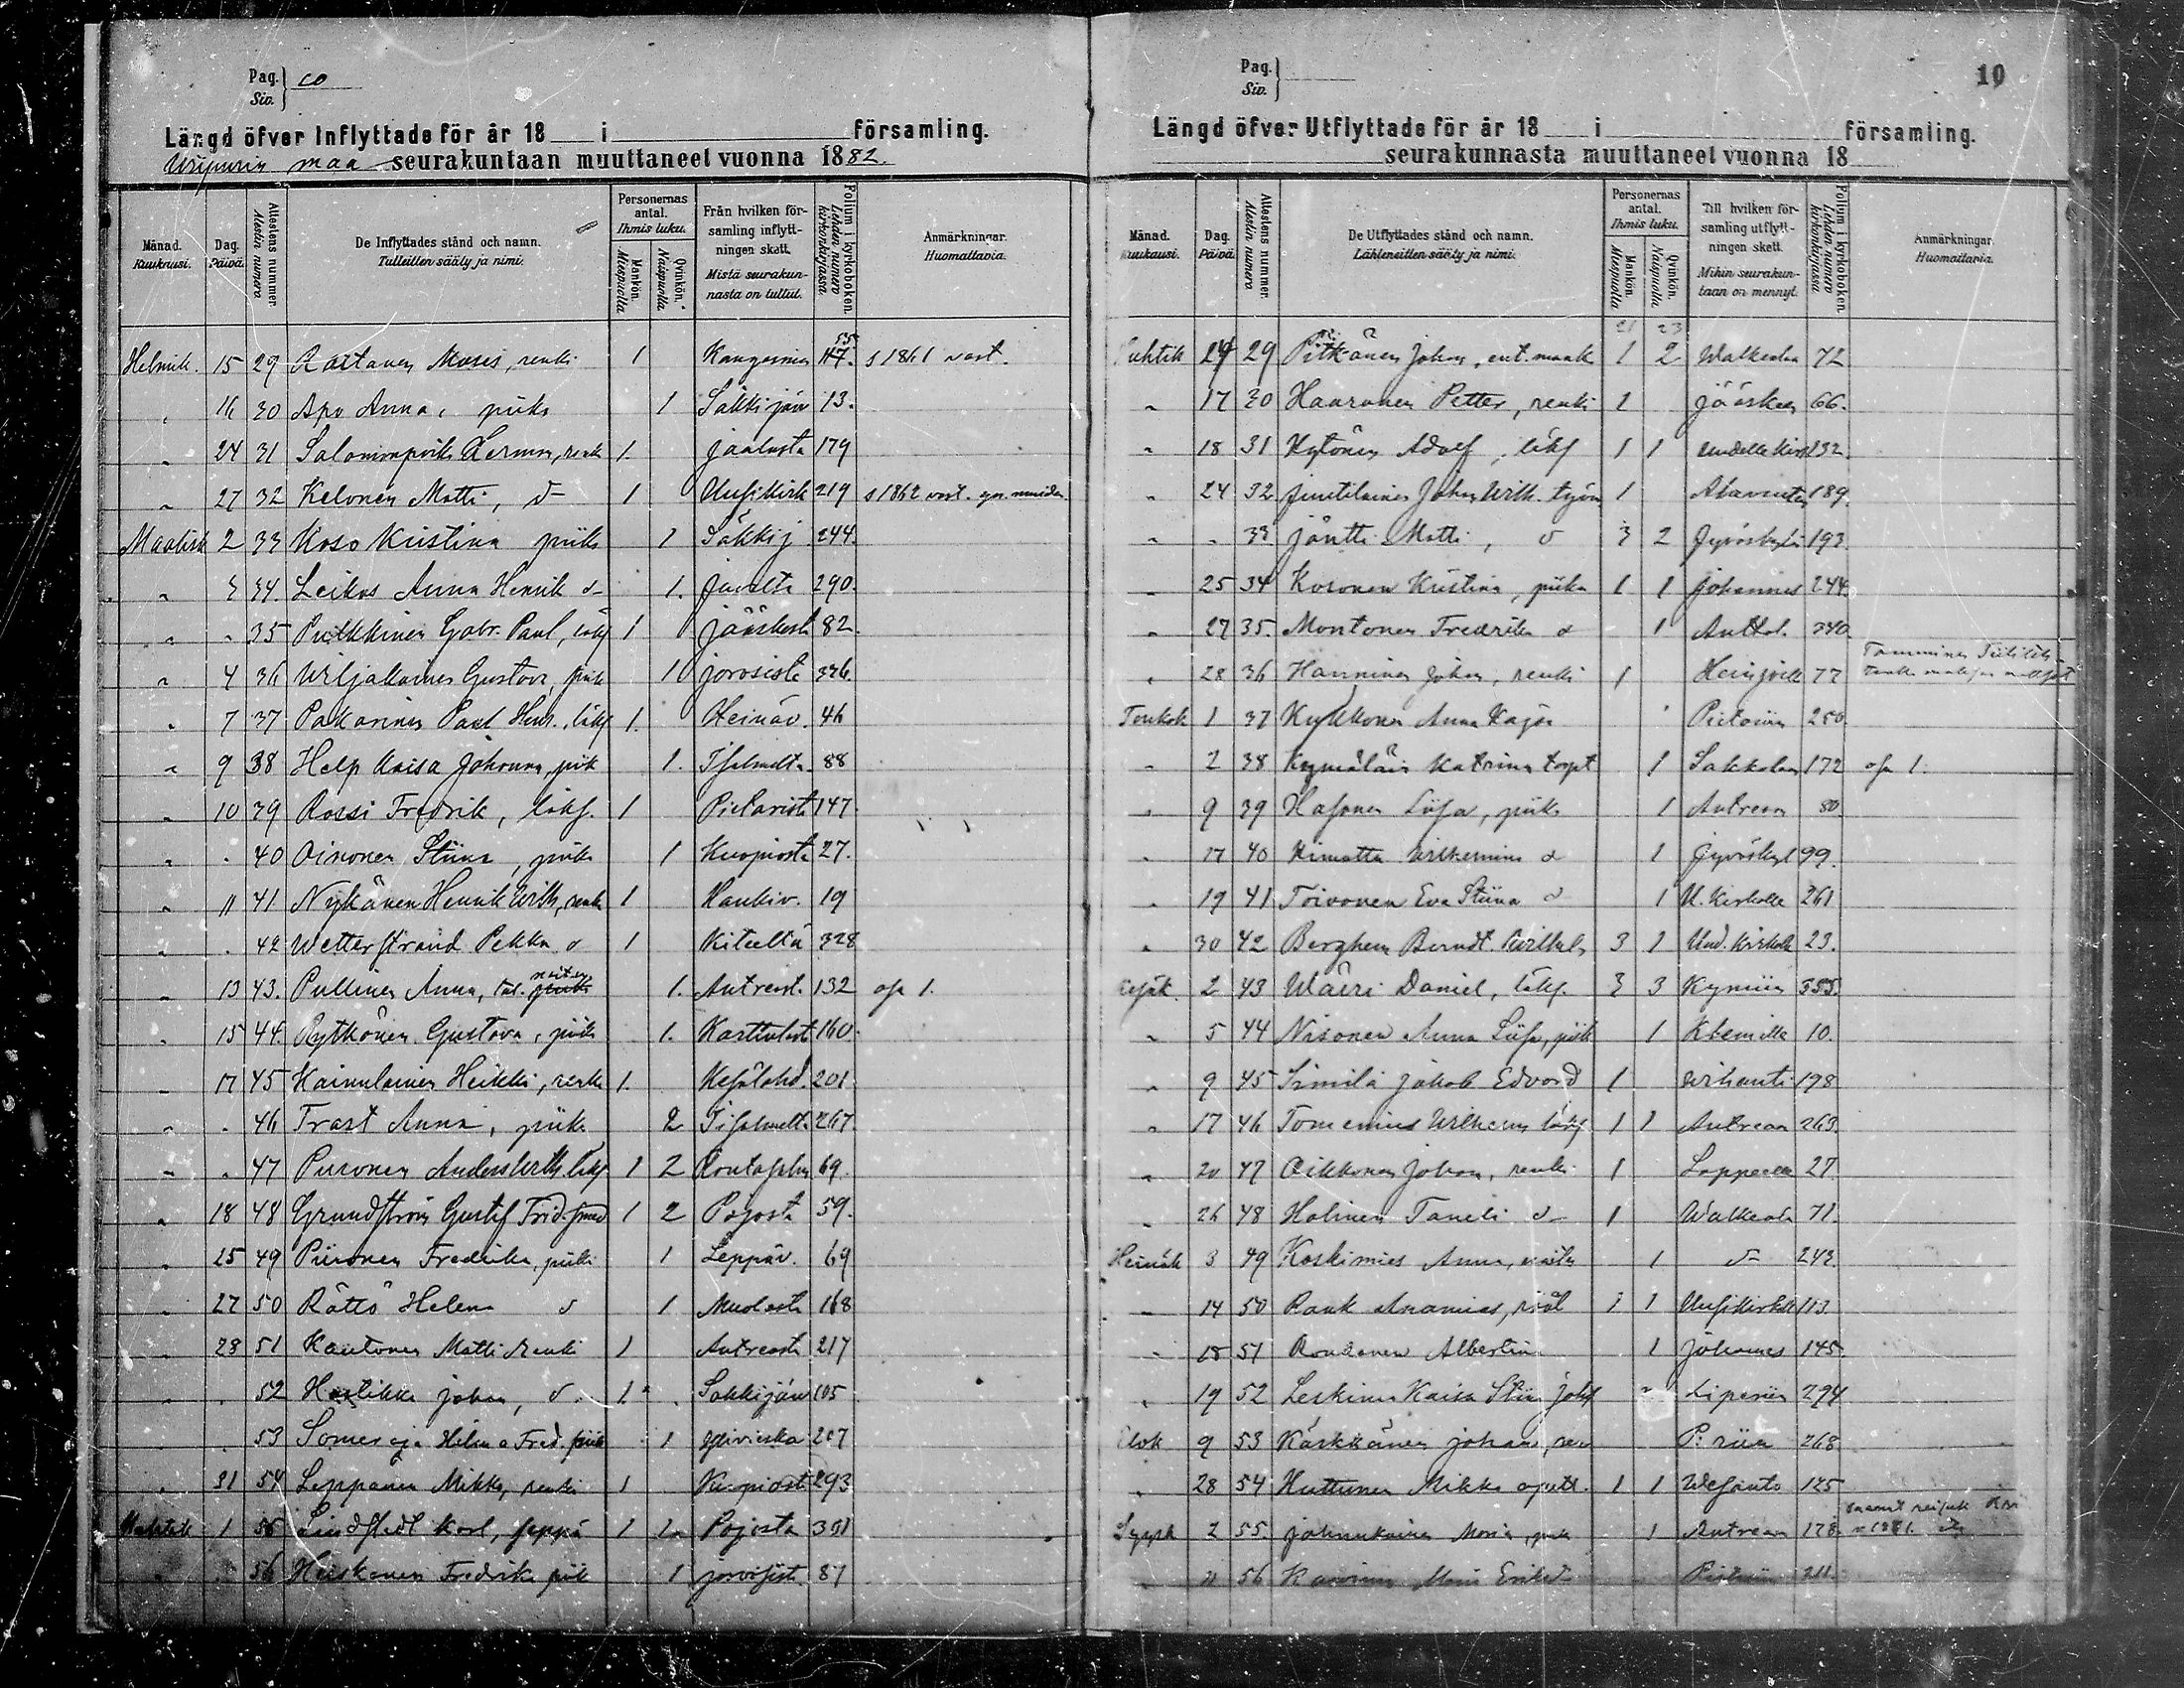 Pag. Siv. 10
Längd öfver Inflyttade för år 18 i församling.
Wiipurin maa seurakuntaan muuttaneet vuonna 1882.
Månad. Kuukausi. Dag. Päivä. Attestens nummer. Atestin numero De Inflyttades stånd och namn. Tulleitten sääty ja nimi. Personernas antal. Ihmis luku. Mankön. Miespuolta Qvinkön. Naispuolta Från hvilken församling inflyttningen skett. Mistä seurakunnasta on tullut. Folium i kyrkoboken. Lehden numero kirkonkirjassa Anmärkningar. Huomattavia.
Helmik. 15 29 Rautanen Moses, renki 1 Kangasniem 117. 55 s 1861 vast.
" 16 30 Apo Anna, piika 1 Säkkijärv 13.
" 24 31 Salomonpoika Herman, renk 1. Jaalasta 179
" 27 32 Kelonen Matti, d- 1 Uusikirk 219 s 1862 vast.
Maalisk 2 33 Koso Kristina piika 1 Säkkij 244.
" 3 34. Leikas Anna Henrik d- 1. 290.
" " 35 Pulkkinen Gabr. Paul, läkf 1 Jääskest 82.
" 4 36 Wiljakainen Gustava, piik 1 Joroisista 336.
" 7 37 Pakarinen Paul Henr. läkf 1. Heinäv. 46
" 9 38 Help Kaisa Johanna, piik 1. Iisalmelta 88
" 10 39 Rossi Fredrik, läkf. 1 Pietarista 147.
" . 40 Oinonen Stiina, piika 1 Kuopiosta 27.
" 11 41 Nykänen Henrik Wilh, renk 1 Hankiv. 19
" . 42 Wetterstrand Pekka d 1 Kiteeltä 328
" 13 43. Pullinen Anna, tal. neiti 1. Antreast. 132 ap 1.
" 15 44. Rytkönen Gustava, piika 1. Karttulast 160.
" 17 45 Kainulainen Heikki, renk 1. Kesälahd. 201.
" . 46 Trast Anna, piika 2 Iisalmelta 267.
" " 47 Puronen Anders Wilh. läkf 1 2 69.
" 18 48 Grundström Gustaf Frid. 1 2 Pojosta 59.
" 25 49 Piironen Fredrika, piika 1 Leppäv. 69
" 27 50 Rättö Helena d 1 Muolasta 168
" 28 51 Kautonen Matti renki 1 Antreasta 217
" . 52 Hostikka Johan, d. 1 Säkkijärv 105
. 53 Someroja Helena Fred. piik 1 Ylivieska 207
" 31 54 Leppanen Mikko, renki 1 Kuopiosta 293
Huhtik 1 55 Lindstedt Karl, seppä 1 2 Pojosta 301
" . 56 Heiskanen Fredrika piik 1 87
Pag. Siv. 10
Längd öfver Utflyttade för år 18 i församling.
seurakunnasta muuttaneet vuonna 18
Månad. Kuukausi. Dag. Päivä. Attestens nummer. Atestin numero De Utflyttades stånd och namn. Lähteneitten sääty ja nimi. Personernas antal. Ihmis luku. Mankön. Miespuolta Qvinkön. Naispuolta Till hvilken församling utflyttningen skett. Mihin seurakuntaan on mennyt. Folium i kyrkoboken. Lehden numero kirkonkirjassa Anmärkningar. Huomattavia.
21 23
Huhtik 29 Pitkänen Johan, ent. maak 1 2 Walkeala 72
" 17 30 Haaranen Petter, renki 1 Jääskeen 66.
" 18 31 Hytönen Adolf, läkf 1 1 Uudelle kirk 132.
" 24 32 Juutilainen Johan Wilh. työm 1 189.
" " 33 Jäntti Matti, d 3 2 Jyväskylä 193.
" 25 34 Kosonen Kristina, piika 1 1 Johannes 244
" 27 35. Montonen Fredrika d 1 Anttol. 340
" 28 36 Hanninen Johan, renki 1 Heinjoelle 77
Toukok 1 37 Kukkonen Anna Kajsa Pietariin 250
" 2 38 Kymäläin Katrina 1 Sakkolaan 172 ap 1.
" 9 39 Hasonen Liisa, piika 1 Antrean 80.
" 17 40 Himatta Wilhelmina d 1 Jyväskyl 99.
" 19 41 Toivonen Eva Stiina d 1 U. Kirkolle 261
" 30 42 Berghem Berndt Wilhel. 3 1 Uud. Kirkolle 23.
Kesäk. 2 43 Wäeri Daniel, läkf. 3 3 Kymiin 355.
" 5 44 Nisonen Anna Liisa, piik 1 10.
" 9 45 Simila Jakob Edvard 1 Wihanti 198
" 17 46 Tomenius Wilhelm läkf 1 1 Antrean 263.
" 20 47 Oikkonen Johan, renki 1 Lappeen 27
" 26 48 Holinen Taneli d- 1 Walkeala 71.
Heinäk 3 49 Koskimies Anna, neiti 1 d- 243.
" 14 50 Rauk Ananias, 1 1 Uusikirkolle 113.
" 18 51 Albertina 1 Johannes 145.
" 19 52 Leskinen Kaisa Stiina Johf 2 Liperiin 294
Elok 9 53 Karkkänen Johan, ren P:riin 268
" 28 54 Huttunen Mikko 1 1 125
Syysk 2 55. Johnukainen Maria, piik 1 Antrean 178. 1881.
" 11 56 Maria Pietariin 211.